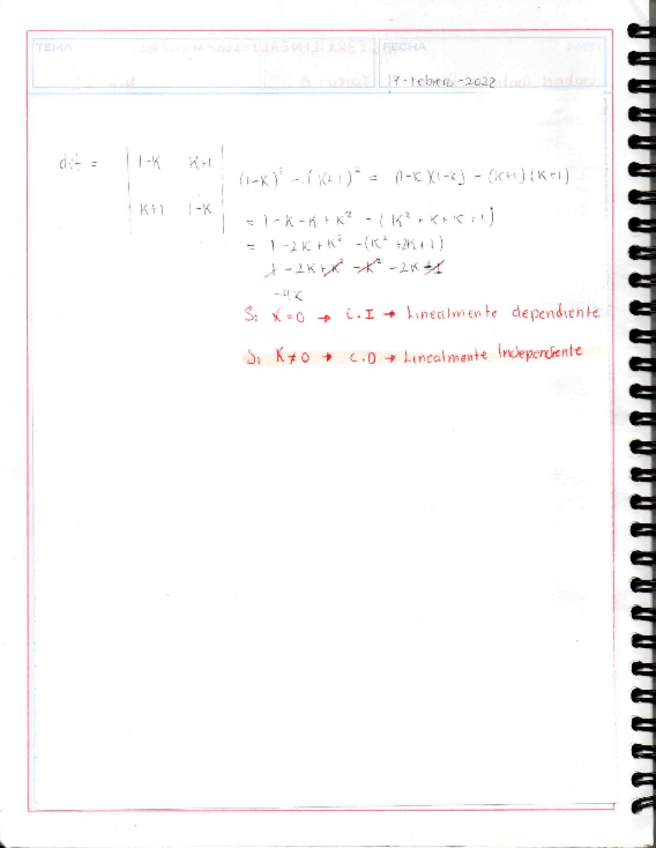 TEMA
FECHA
17-Febrero-2022
det = | 1-K K+1 |
| K+1 1-K |
(1-K)² - (K+1)² = (1-K)(1-K) - (K+1)(K+1)
= 1-K-K+K² - (K²+K+K+1)
= 1-2K+K² -(K²+2K+1)
1-2K+K²-K²-2K-1
-4K
Si K=0 → C.I → Linealmente dependiente
Si K≠0 → C.D → Linealmente Independiente